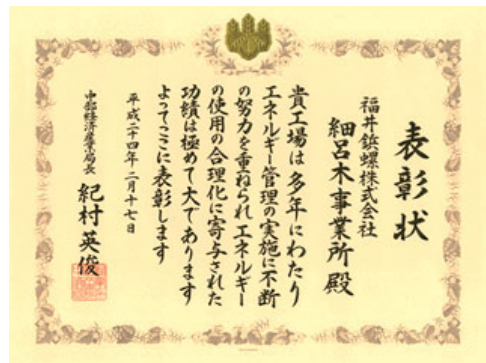 表彰状
福井鋲螺株式会社
細呂木事業所殿
貴工場は多年にわたり
エネルギー管理の実施に不断
の努力を重ねられエネルギー
の使用の合理化に寄与された
功績は極めて大であります
よってここに表彰します
平成二十四年二月十七日
中部経済産業局長
紀村英俊